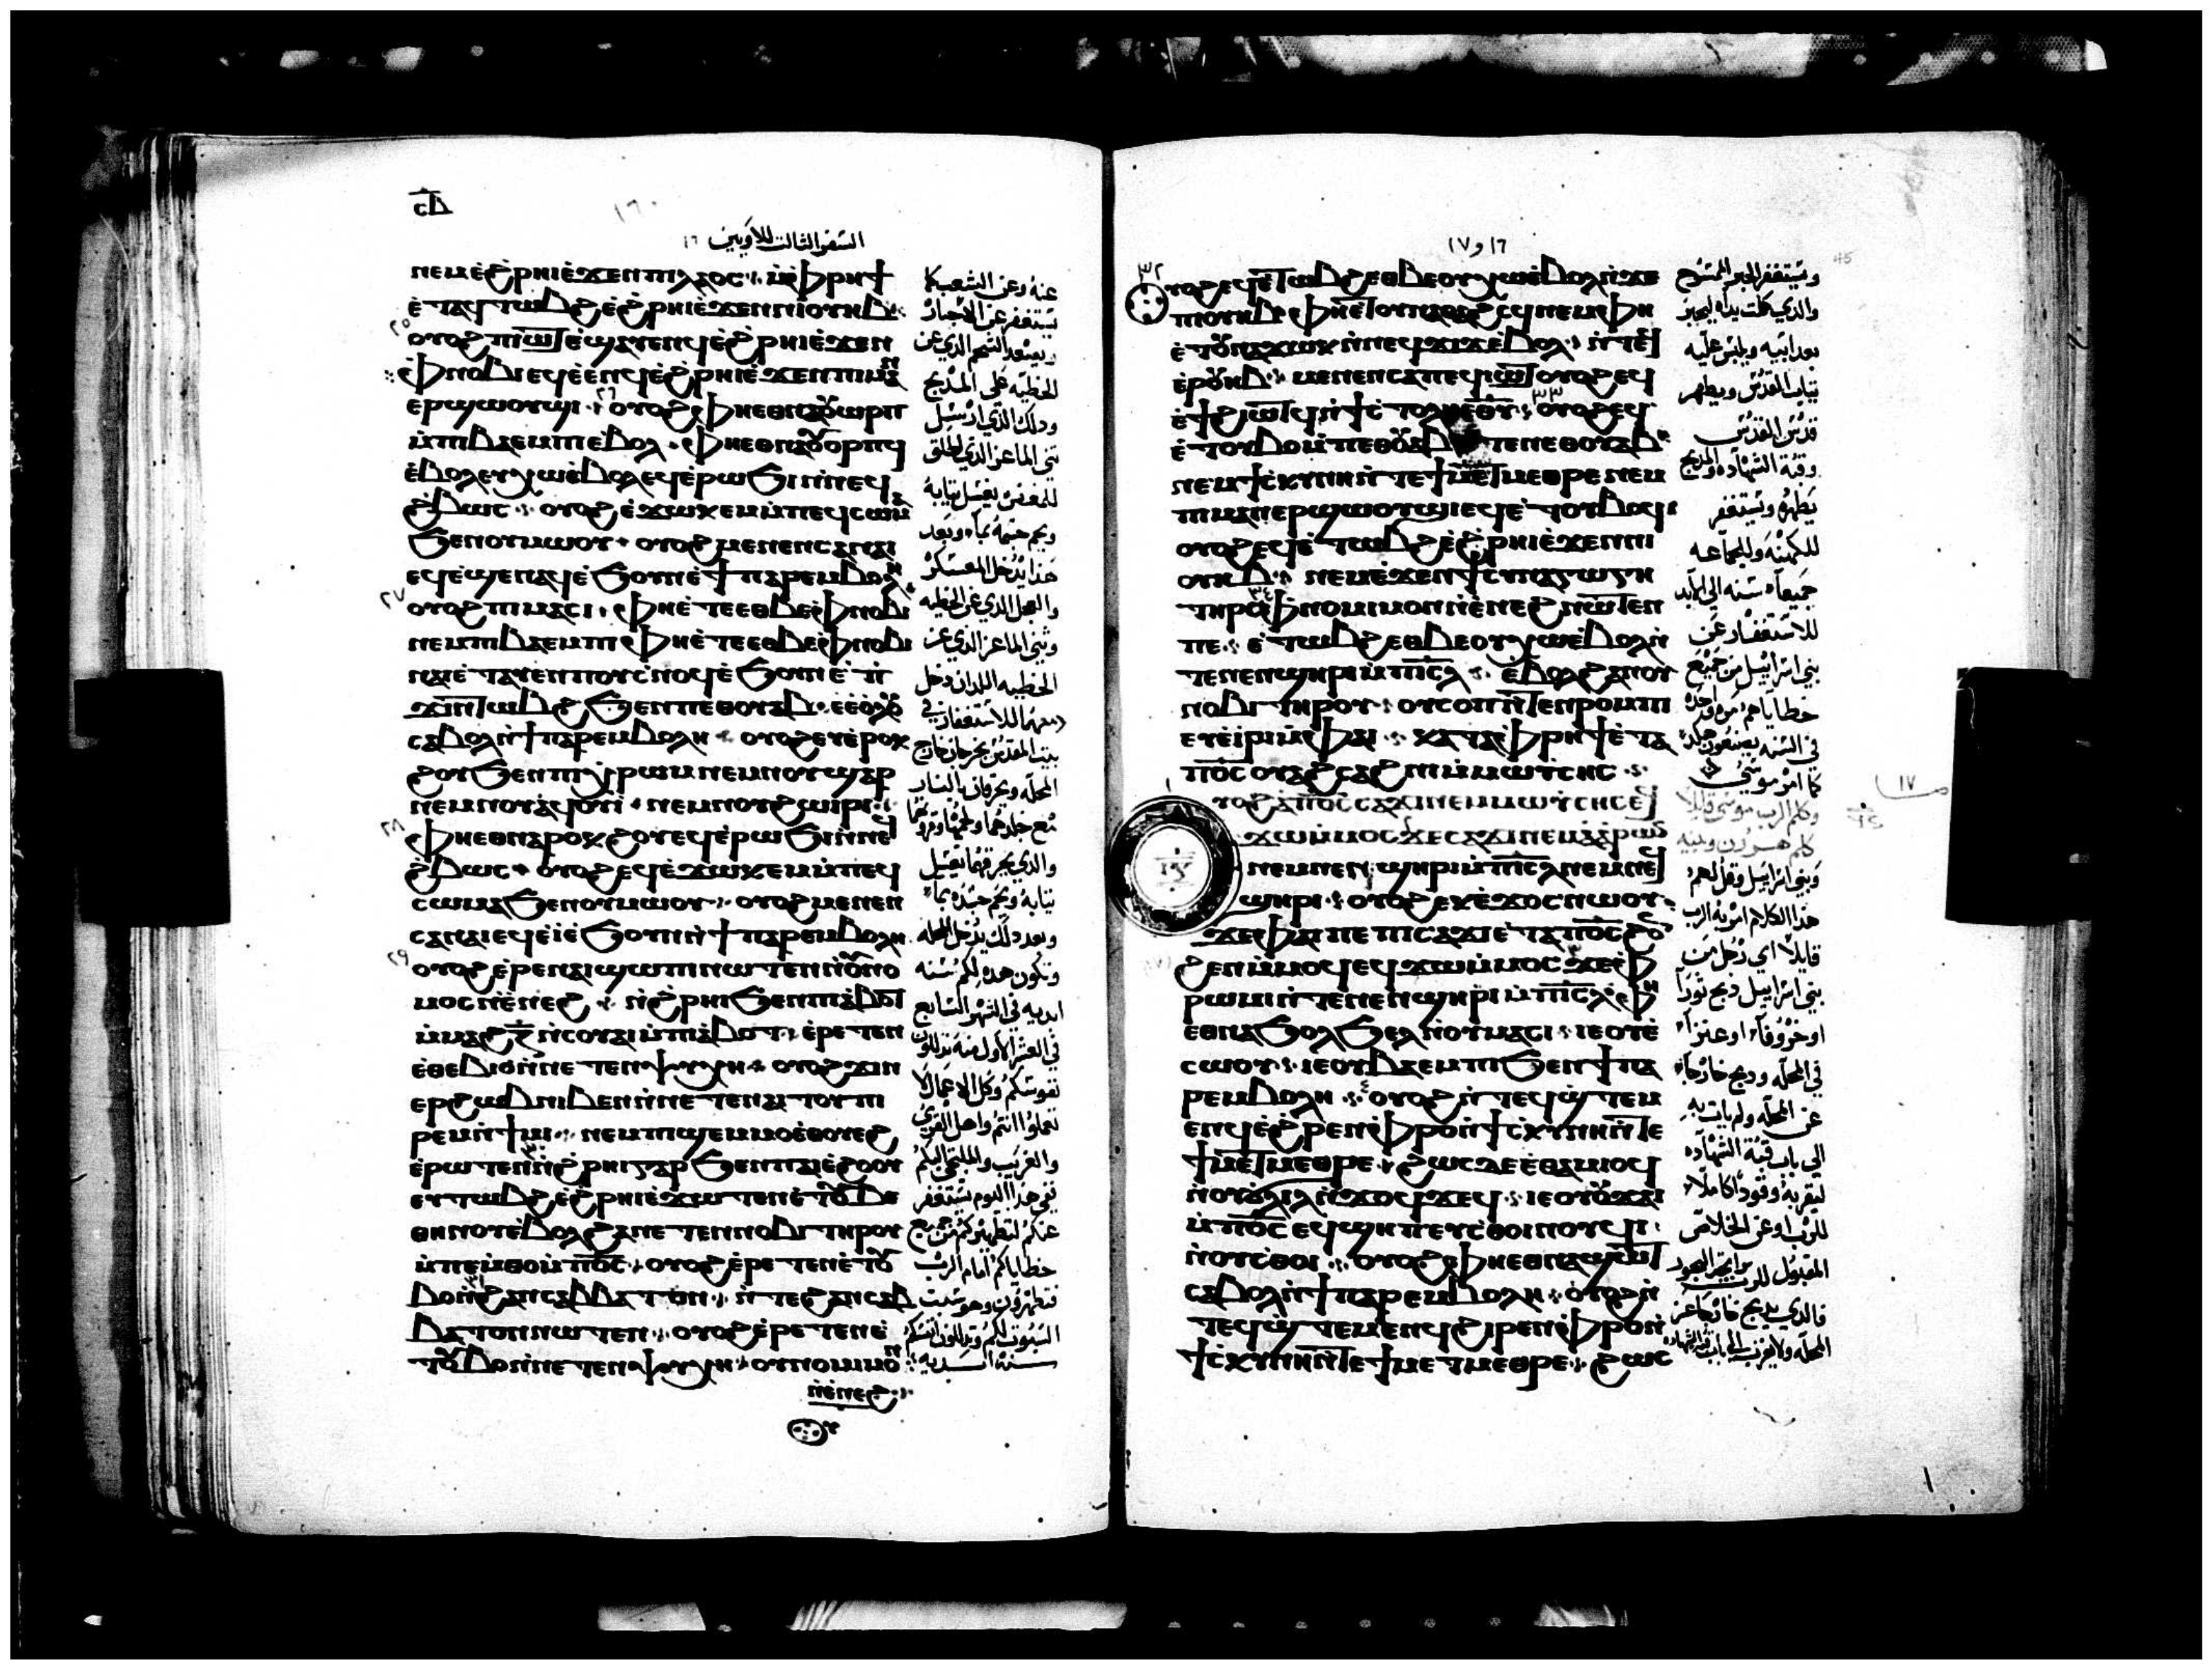 السفر الثالث للاويين ١٦
ⲛⲉⲙⲉ̀ϩ̀ⲣⲏⲓⲉ̀ϫⲉⲛⲡⲓⲗⲁⲟⲥ ⲙ̀ⲫⲣⲏϯ
ⲉ̀ⲧⲁϥⲧⲱⲃϩⲉ̀ϩ̀ⲣⲏⲓⲉ̀ϫⲉⲛⲛⲓⲟⲩⲏⲃ
٢٥
ⲟⲩⲟϩ ⲡⲓⲱⲧ ⲉϣⲁⲩⲉⲛϥⲉ̀ϩ̀ⲣⲏⲓⲉ̀ϫⲉⲛ
ⲫⲛⲟⲃⲓ ⲉϥⲉ̀ⲉⲛϥⲉ̀ϩ̀ⲣⲏⲓⲉ̀ϫⲉⲛⲡⲓⲙⲁⲛ
ⲉⲣϣⲱⲟⲩϣⲓ ٢٦ ⲟⲩⲟϩ ⲫⲏⲉⲑⲛⲁⲟⲩⲱⲣⲡ
ⲙ̀ⲡⲓⲃⲁⲉⲙⲡⲓⲉ̀ⲃⲟⲗ ⲫⲏⲉⲑⲛⲁⲟⲩⲟⲣⲡϥ
ⲉ̀ⲃⲟⲗⲉⲩⲭⲱⲉ̀ⲃⲟⲗ ⲉϥⲉ̀ⲣⲱϧⲓⲛ̀ⲛⲉϥ
ϩ̀ⲃⲱⲥ ⲟⲩⲟϩ ⲉ̀ϫⲱⲕⲉⲙⲙ̀ⲡⲉϥⲥⲱⲙⲁ
ϧⲉⲛⲟⲩⲙⲱⲟⲩ ⲟⲩⲟϩ ⲙⲉⲛⲉⲛⲥⲁⲛⲁⲓ
ⲉϥⲉ̀ϣⲉⲛⲁϥⲉ̀ϧⲟⲩⲛⲉ̀ϯⲡⲁⲣⲉⲙⲃⲟⲗⲏ
٢٧
ⲟⲩⲟϩ ⲡⲓⲙⲁⲥⲓ ⲫⲏⲉ̀ⲧⲉⲉⲑⲃⲉⲫⲛⲟⲃⲓ
ⲛⲉⲙⲡⲓⲃⲁⲉⲙⲡⲓ ⲫⲏⲉ̀ⲧⲉⲉⲑⲃⲉⲫⲛⲟⲃⲓ
ⲛⲁⲓⲉ̀ⲧⲁⲩⲉⲛⲡⲟⲩⲥ̀ⲛⲟϥⲉ̀ϧⲟⲩⲛⲉ̀ⲡ̀
ϫⲓⲛⲧⲱⲃϩ ϧⲉⲛⲡⲉⲑⲟⲩⲁⲃ ⲉⲩⲉ̀ⲟⲗⲟⲩ
ⲥⲁⲃⲟⲗⲛ̀ϯⲡⲁⲣⲉⲙⲃⲟⲗⲏ ⲟⲩⲟϩ ⲉⲩⲉ̀ⲣⲟⲕ
ϩⲟⲩϧⲉⲛⲡⲓⲭ̀ⲣⲱⲙ ⲛⲉⲙⲛⲟⲩϣⲁⲣ
ⲛⲉⲙⲛⲟⲩⲁ̀ϥⲟⲩⲓ̀ ⲛⲉⲙⲛⲟⲩϩⲱⲓⲣⲓ
٢٨
ⲫⲏⲉⲑⲛⲁⲣⲟⲕϩⲟⲩ ⲉϥⲉ̀ⲣⲱϧⲓⲛ̀ⲛⲉϥ
ϩ̀ⲃⲱⲥ ⲟⲩⲟϩ ⲉϥⲉ̀ϫⲱⲕⲉⲙⲙ̀ⲡⲉϥ
ⲥⲱⲙⲁϧⲉⲛⲟⲩⲙⲱⲟⲩ ⲟⲩⲟϩ ⲙⲉⲛⲉⲛ
ⲥⲁⲛⲁⲓⲉϥⲉ̀ⲓ̀ⲉ̀ϧⲟⲩⲛⲛ̀ϯⲡⲁⲣⲉⲙⲃⲟⲗⲏ
٢٩
ⲟⲩⲟϩ ⲉ̀ⲣⲉⲛⲁⲓϣⲱⲡⲓⲛⲱⲧⲉⲛⲛ̀ⲟⲩⲛⲟ
ⲙⲟⲥⲛ̀ⲉ̀ⲛⲉϩ ⲛ̀ϩ̀ⲣⲏⲓϧⲉⲛⲡⲓⲁ̀ⲃⲟⲧ
ⲙ̀ⲙⲁϩⲍ̅ ⲛ̀ⲥⲟⲩⲁⲓⲙ̀ⲡⲓⲁ̀ⲃⲟⲧ ⲉ̀ⲣⲉⲧⲉⲛ
ⲉ̀ⲑⲉⲃⲓⲟⲛ̀ⲛⲉⲧⲉⲛⲯⲩⲭⲏ ⲟⲩⲟϩ ϫⲓⲛ
ⲉⲣϩⲱⲃⲛⲓⲃⲉⲛⲛ̀ⲛⲉⲧⲉⲛⲁⲓⲧⲟⲩ ⲡⲓ
ⲣⲉⲙⲛ̀ϯⲙⲓ ⲛⲉⲙⲡⲓϣⲉⲙⲙⲟⲉ̀ⲑⲟⲩⲉϩ
ⲉ̀ⲣⲱⲧⲉⲛ ٣٠ ⲛ̀ϩ̀ⲣⲏⲓⲅⲁⲣ ϧⲉⲛⲡⲁⲓⲉ̀ϩⲟⲟⲩ
ⲉⲩⲧⲱⲃϩⲉ̀ϩ̀ⲣⲏⲓⲉ̀ϫⲱⲧⲉⲛⲉ̀ⲧⲟⲩⲃⲉ
ⲑⲏⲛⲟⲩⲉ̀ⲃⲟⲗϩⲁⲛⲉⲧⲉⲛⲛⲟⲃⲓ ⲧⲏⲣⲟⲩ
ⲙ̀ⲡⲉⲙ̀ⲑⲟⲙ̀ⲡⲟ̅ⲥ̅ ⲟⲩⲟϩ ⲉ̀ⲣⲉⲧⲉⲛⲉ̀ⲧⲟⲩ
ⲃⲟ ٣١ ⲛ̀ϩⲁⲛⲥⲁⲃⲃⲁⲧⲟⲛ ⲛ̀ⲧⲉϩⲁⲛⲥⲁⲃ
ⲃⲁⲧⲟⲛⲛⲱⲧⲉⲛ ⲟⲩⲟϩ ⲉ̀ⲣⲉⲧⲉⲛⲉ̀
ⲧⲟⲩⲃⲟⲛ̀ⲛⲉⲧⲉⲛⲯⲩⲭⲏ ⲟⲩⲛⲟⲙⲙⲟⲛ
ⲛ̀ⲉ̀ⲛⲉϩ
عنه وعن الشعب كما
يستغفر عن الاحبار
ويصعد الشحم الذي عن
الخطيه على المذبح
وذلك الذي ارسل
تيس الماعز الذي اطلق
للمغفره يغسل ثيابه
ويحم جسمه بماء وبعد
هذا يدخل المعسكر
والعجل الذي عن الخطيه
وتيس الماعز الذي عن
الخطيه اللذان دخل
دمهما للاستغفار في
بيت المقدس يخرجان خارج
المحله ويحرقان بالنار
مع جلدهما ولحمهما
والذي يحرقهما يغسل
ثيابه ويحم جسده بماء
وبعد ذلك يدخل المحله
وتكون هذه لكم سنه
ابديه في الشهر السابع
في العشر الاول منه تذللون
نفوسكم وكل الاعمال لا
تعملوا انتم واهل القري
والغريب والملتجي اليكم
ففي هذا اليوم يستغفر
عنكم لتطهيركم من جميع
خطاياكم امام الرب
فتطهرون وهو سبت
السبوت لكم وتذللون انفسكم
سنه ابديه
١٦ و ١٧
٣٢
ⲟⲩⲟϩ ⲉϥⲉ̀ⲧⲱⲃϩⲉⲑⲃⲉⲟⲩⲭⲱⲉ̀ⲃⲟⲗⲛ̀ϫⲉ
ⲡⲓⲟⲩⲏⲃ ⲫⲏⲉ̀ⲧⲟⲩⲛⲁⲑⲁϩⲥϥ ⲛⲉⲙⲫⲏ
ⲉ̀ⲧⲟⲩⲛⲁϫⲱⲕⲛ̀ⲛⲉϥϫⲓϫⲉ̀ⲃⲟⲗ ⲛ̀ⲧⲉϥ
ⲉ̀ⲣⲟⲩⲏⲃ ⲙⲉⲛⲉⲛⲥⲁⲡⲉϥⲓⲱⲧ ⲟⲩⲟϩ ⲉϥ
ⲉ̀ϯϩⲓⲱⲧϥⲛ̀ϯⲥ̀ⲧⲟⲗⲏⲉⲑⲩ ٣٣ ⲟⲩⲟϩ ⲉϥ
ⲉ̀ⲧⲟⲩⲃⲟⲙ̀ⲡⲉⲑⲟⲩⲁⲃ ⲛ̀ⲧⲉⲛⲉⲑⲟⲩⲁⲃ
ⲛⲉⲙϯⲥⲕⲩⲛⲏⲛ̀ⲧⲉϯⲙⲉⲧⲙⲉⲑⲣⲉ ⲛⲉⲙ
ⲡⲓⲙⲁⲛⲉⲣϣⲱⲟⲩϣⲓⲉϥⲉ̀ⲧⲟⲩⲃⲟϥ
ⲟⲩⲟϩ ⲉϥⲉ̀ⲧⲱⲃϩⲉ̀ϩ̀ⲣⲏⲓⲉ̀ϫⲉⲛⲛⲓ
ⲟⲩⲏⲃ ⲛⲉⲙⲉ̀ϫⲉⲛϯⲥⲩⲛⲁⲅⲱⲅⲏ
ⲧⲏⲣⲥ ٣٤ ⲫⲛⲟⲙⲓⲙⲟⲛⲛ̀ⲉ̀ⲛⲉϩ ⲛⲱⲧⲉⲛ
ⲡⲉ ⲉ̀ⲧⲱⲃϩⲉⲑⲃⲉⲟⲩⲭⲱⲉ̀ⲃⲟⲗⲛ̀
ⲧⲉⲛⲉⲛϣⲏⲣⲓⲙ̀ⲡⲓⲥ̅ⲗ̅ ⲉ̀ⲃⲟⲗϩⲁⲛⲟⲩ
ⲛⲟⲃⲓ ⲧⲏⲣⲟⲩ ⲟⲩⲥⲟⲡⲛ̀ⲧⲉⲛⲣⲟⲙⲡⲓ
ⲉⲩⲉ̀ⲓ̀ⲣⲓⲙ̀ⲫⲁⲓ ⲕⲁⲧⲁⲫⲣⲏϯⲉ̀ⲧⲁ
ⲡⲟ̅ⲥ̅ ⲟⲩⲁϩⲥⲁϩⲛⲓⲙ̀ⲙⲱⲩ̀ⲥⲏⲥ
١
ⲟⲩⲟϩ ⲁ̀ⲡⲟ̅ⲥ̅ ⲥⲁϫⲓⲛⲉⲙⲙⲱⲩ̀ⲥⲏⲥⲉϥ
ϫⲱⲙ̀ⲙⲟⲥ ϫⲉⲥⲁϫⲓⲛⲉⲙⲁ̀ⲁ̀ⲣⲱⲛ
ⲛⲉⲙⲛⲉⲛϣⲏⲣⲓⲙ̀ⲡⲓⲥ̅ⲗ̅ ⲛⲉⲙⲛⲉϥ
ϣⲏⲣⲓ ⲟⲩⲟϩ ⲉⲕⲉ̀ϫⲟⲥⲛⲱⲟⲩ
ϫⲉⲫⲁⲓⲡⲉⲡⲓⲥⲁϫⲓⲉ̀ⲧⲁⲡⲟ̅ⲥ̅ ϩⲟⲛ
ϩⲉⲛⲙ̀ⲙⲟϥⲉϥϫⲱⲙ̀ⲙⲟⲥ ٣ ϫⲉⲫ
ⲣⲱⲙⲓⲛ̀ⲧⲉⲛⲉⲛϣⲏⲣⲓⲙ̀ⲡⲓⲥ̅ⲗ̅ ⲫⲏ
ⲉⲑⲛⲁϧⲟⲗϧⲉⲗⲛ̀ⲟⲩⲙⲁⲥⲓ ⲓⲉⲟⲩⲉ̀
ⲥⲱⲟⲩ ⲓⲉⲟⲩⲃⲁⲉⲙⲡⲓϧⲉⲛϯⲡⲁ
ⲣⲉⲙⲃⲟⲗⲏ ٤ ⲟⲩⲟϩ ⲛ̀ⲧⲉϥϣ̀ⲧⲉⲙ
ⲉⲛϥⲉ̀ϩ̀ⲣⲉⲛⲫⲣⲟⲛ̀ϯⲥ̀ⲕⲩⲛⲏⲛ̀ⲧⲉ
ϯⲙⲉⲧⲙⲉⲑⲣⲉ ϩⲱⲥⲇⲉⲉ̀ⲑⲁⲙⲓⲟϥ
ⲛ̀ⲟⲩϭⲗⲓⲗ ⲓⲉⲟⲩⲟⲩϫⲁⲓ
ⲙ̀ⲡⲟ̅ⲥ̅ ⲉϥϣⲏⲡ ⲉⲩⲥ̀ⲑⲟⲓⲛⲟⲩϥⲓ
ⲛ̀ⲟⲩⲥ̀ⲑⲟⲓ ⲟⲩⲟϩ ⲫⲏⲉⲑⲛⲁϣⲁⲧϥ
ⲥⲁⲃⲟⲗⲛ̀ϯⲡⲁⲣⲉⲙⲃⲟⲗⲏ ⲟⲩⲟϩ ⲛ̀
ⲧⲉϥϣ̀ⲧⲉⲙⲉⲛϥϩⲓⲣⲉⲛⲫⲣⲟⲛ̀
ϯⲥ̀ⲕⲩⲛⲏⲛ̀ⲧⲉϯⲙⲉⲧⲙⲉⲑⲣⲉ ϩⲱⲥ
ويستغفر الحبر المسوح
والذي كملت يداه ليحبر
بعد ابيه ويلبس عليه
ثياب القدس ويطهر
قدس القدس
وقبة الشهاده والمذبح
يطهره ويستغفر
للكهنه وللجماعه
جميعا سنه الي الابد
للاستغفار عن
بني اسراييل من جميع
خطاياهم مره واحده
في السنه يصنعون هذا
كما امر موسي
وكلم الرب موسي قايلا
كلم هرون وبنيه
وبني اسراييل وقل لهم
هذا الكلام امر به الرب
قايلا اي رجل من
بني اسراييل ذبح ثورا
او خروفا او عنزا
في المحله وذبح خارجا
عن المحله ولم يات به
الي باب قبة الشهاده
ليقربه وقودا كاملا
للرب او عن الخلاص
المقبول للرب
فالذي يذبح خارجا عن
المحله ولا يقرب الي باب قبة الشهاده
١٧
45